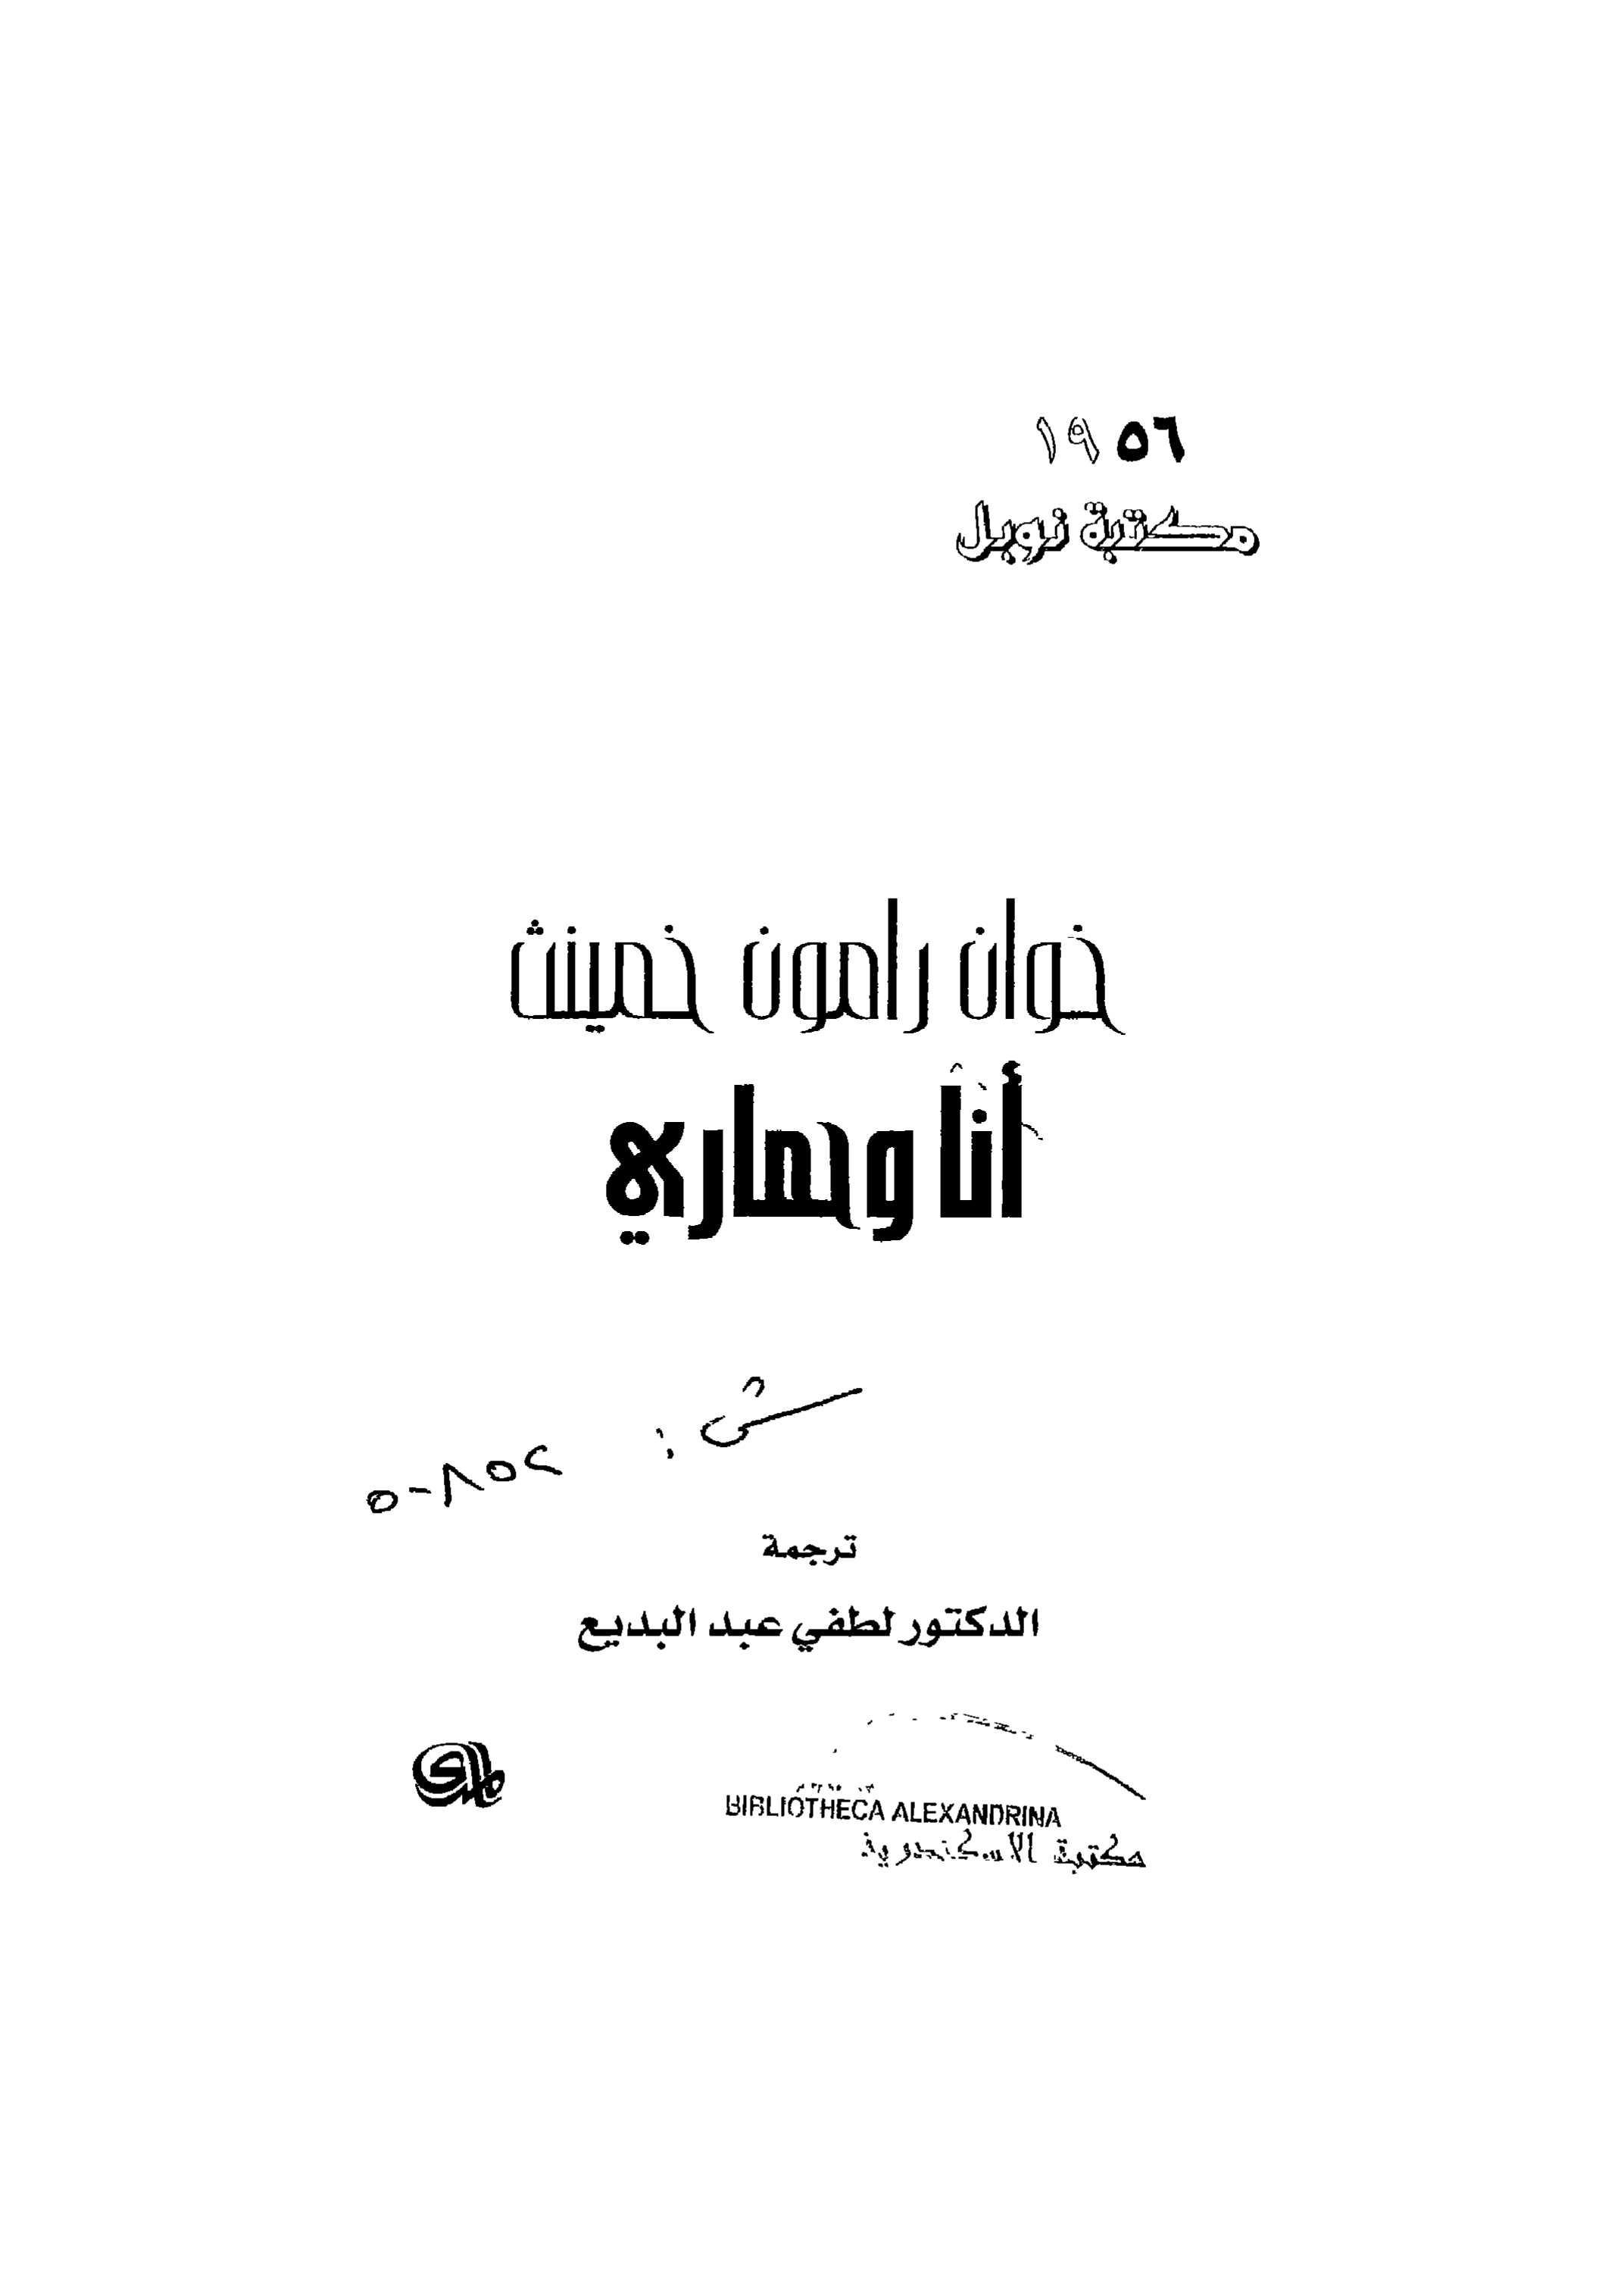 ١٩٥٦
مكتبة نوبل
خوان رامون خمينث
أنا وحماري
ش :
٥-٨٥٢
ترجمة
الدكتور لطفي عبد البديع
BIBLIOTHECA ALEXANDRINA
مكتبة الاسكندرية